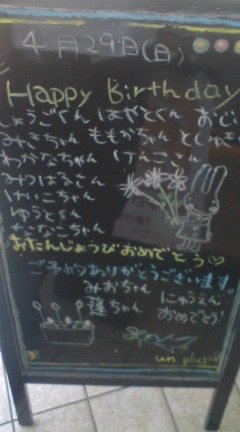 4月29日(日)
Happy Birthday
しょうごくん はやとくん
みきちゃん ももかちゃん
わかなちゃん けんごさん
みつはるさん
けいこちゃん
ゆうとくん
ななこちゃん
おたんじょうびおめでとう♡
ご予約ありがとうございます。
みおちゃん にゅうえん
蓮ちゃん おめでとう
un plus